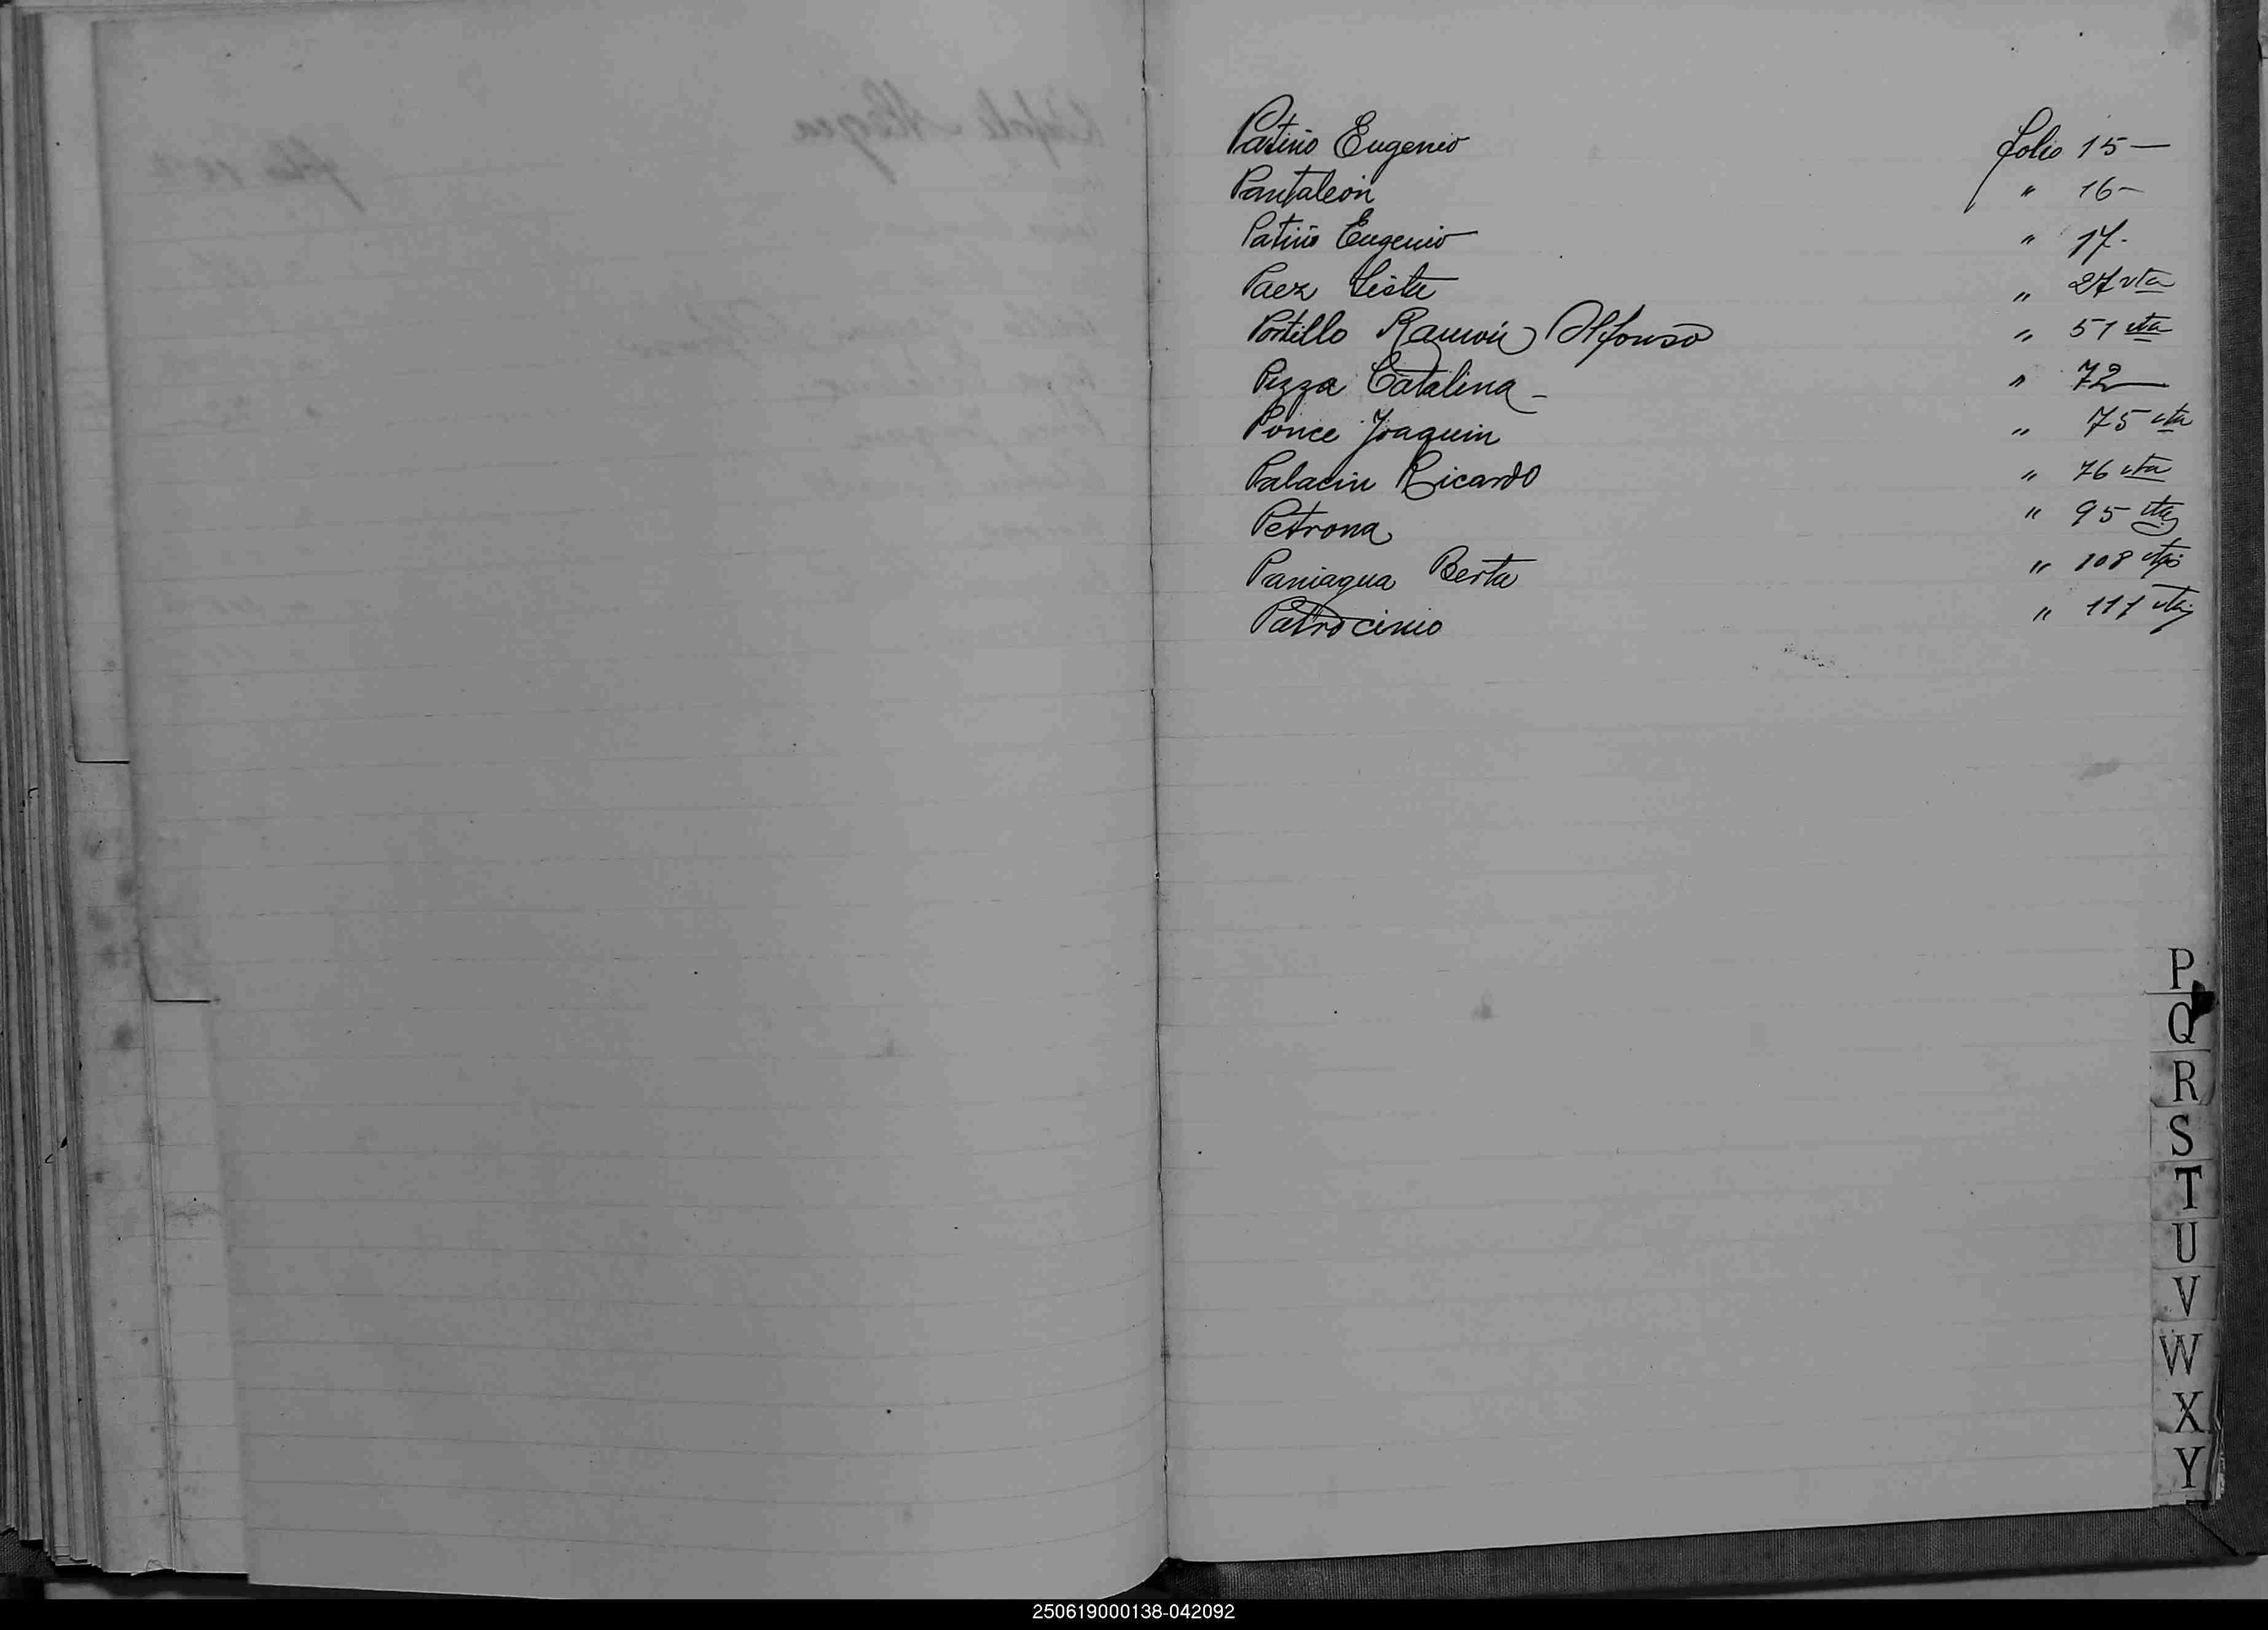 Patiño Eugenio folio 15—
Pantaleón " 16—
Patiño Eugenio " 17.
Paez Sista " 27 vta
Portillo Ramón Alfonso " 51 vta
Pizza Catalina — " 72—
Ponce Joaquin " 75 vta
Palacin Ricardo " 76 vta
Petrona " 95 vta
Paniagua Berta " 108 vta
Patrocinio " 111 vta
P
Q
R
S
T
U
V
W
X
Y
250619000138-042092